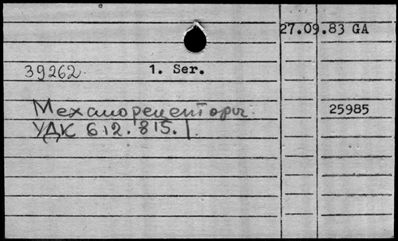 27.09.83 GA
39262 1. Ser.
Механорецепторы. 25985
УДК 612.815.1